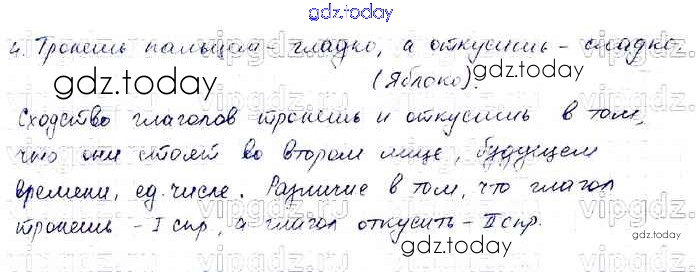 gdz.today
4. Тронешь пальцем - гладко, а откусишь - сладко.
gdz.today (Яблоко).
gdz.today
Сходство глаголов тронешь и откусишь в том,
что они стоят во втором лице, будущем
времени, ед. числе. Различие в том, что глагол
тронешь - I спр, а глагол откусить - II спр.
gdz.today